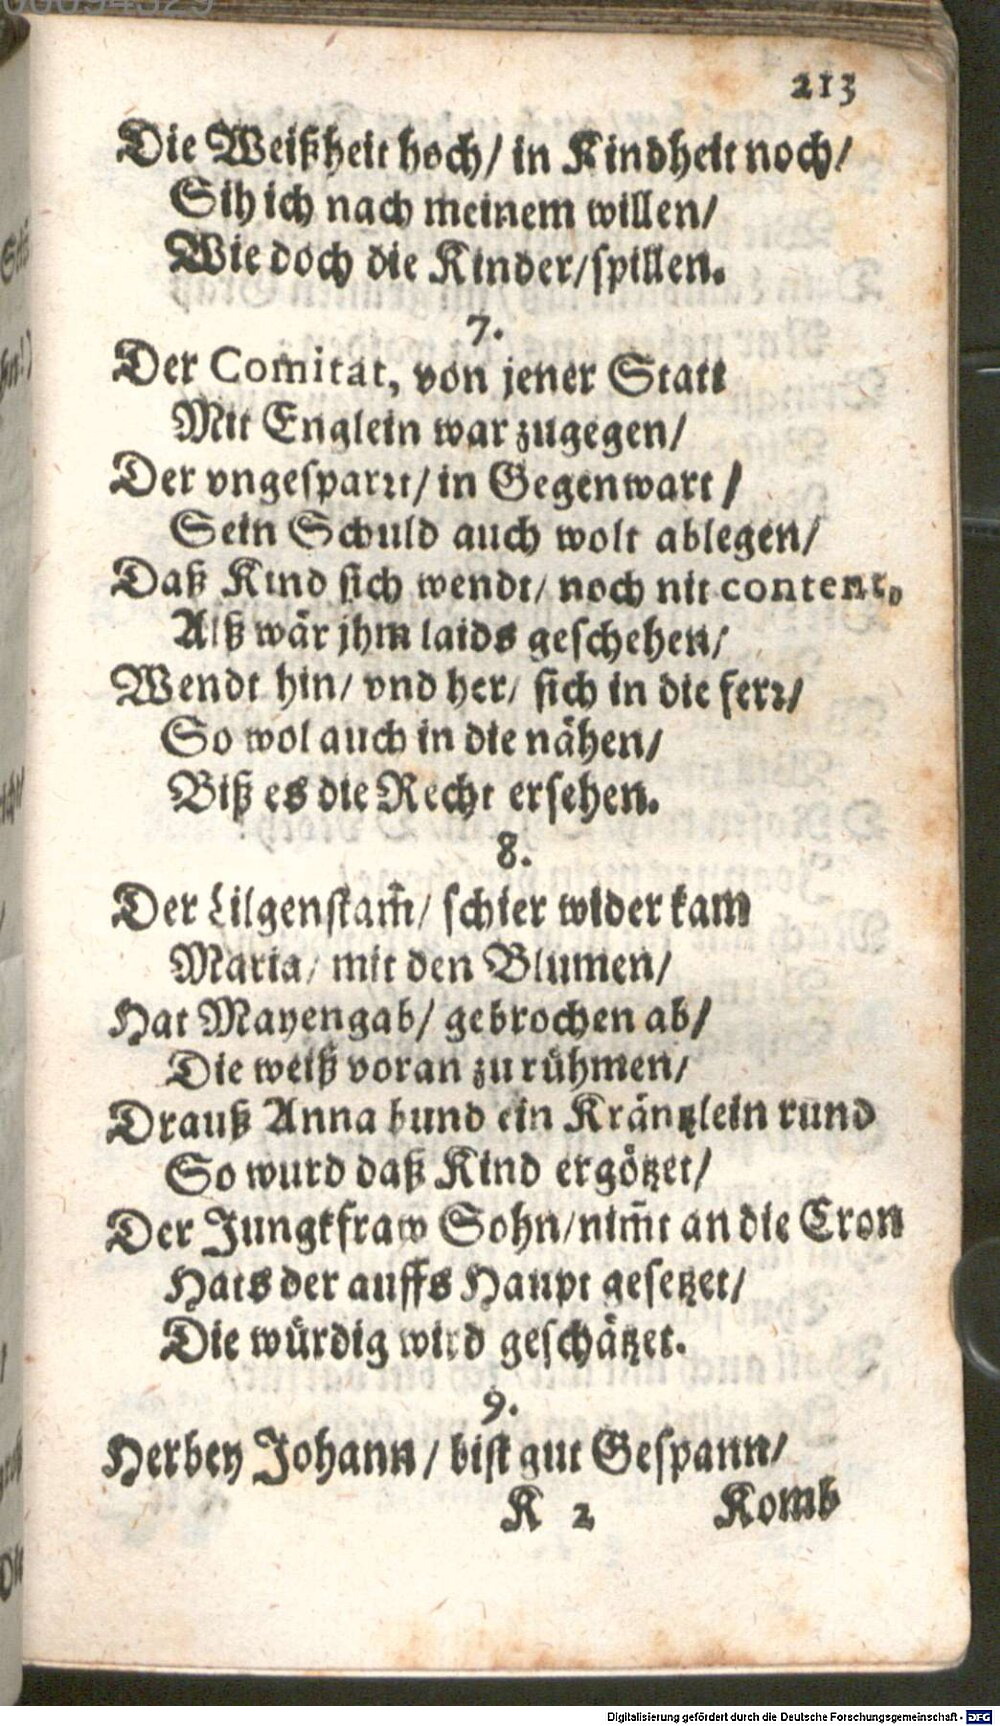 213
Die Weißheit hoch/ in Kindheit noch/
Sih ich nach meinem willen/
Wie doch die Kinder/spillen.
7.
Der Comitat, von jener Statt
Mit Englein war zugegen/
Der vngesparꝛt/ in Gegenwart/
Sein Schuld auch wolt ablegen/
Daß Kind sich wendt/ noch nit content,
Alß wär jhm laids geschehen/
Wendt hin/ vnd her/ sich in die ferꝛ/
So wol auch in die nähen/
Biß es die Recht ersehen.
8.
Der Lilgenstam̃/ schier wider kam
Maria/ mit den Blumen/
Hat Mayengab/ gebrochen ab/
Die weiß voran zu rühmen/
Drauß Anna bund ein Kräntzlein rund
So wurd daß Kind ergötzet/
Der Jungkfraw Sohn/nim̃t an die Cron
Hats der auffs Haupt gesetzet/
Die würdig wird geschätzet.
9.
Herbey Johann/ bist gut Gespann/
K 2 Komb
Digitalisierung gefördert durch die Deutsche Forschungsgemeinschaft - DFG